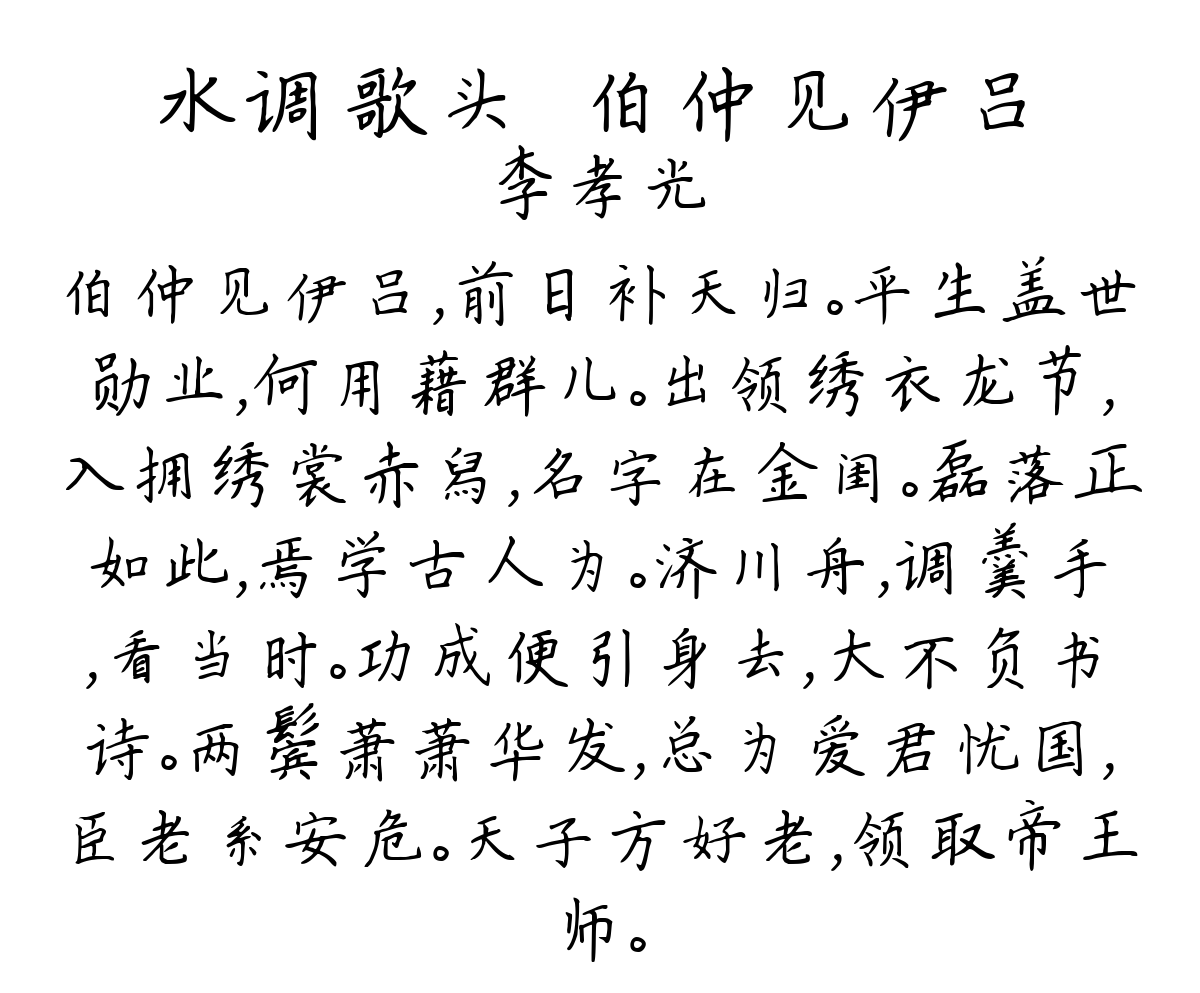 水调歌头 伯仲见伊吕
李孝光
伯仲见伊吕,前日补天归。平生盖世
勋业,何用藉群儿。出领绣衣龙节,
入拥绣裳赤舄,名字在金闺。磊落正
如此,焉学古人为。济川舟,调羹手
,看当时。功成便引身去,大不负书
诗。两鬓萧萧华发,总为爱君忧国,
臣老系安危。天子方好老,领取帝王
师。